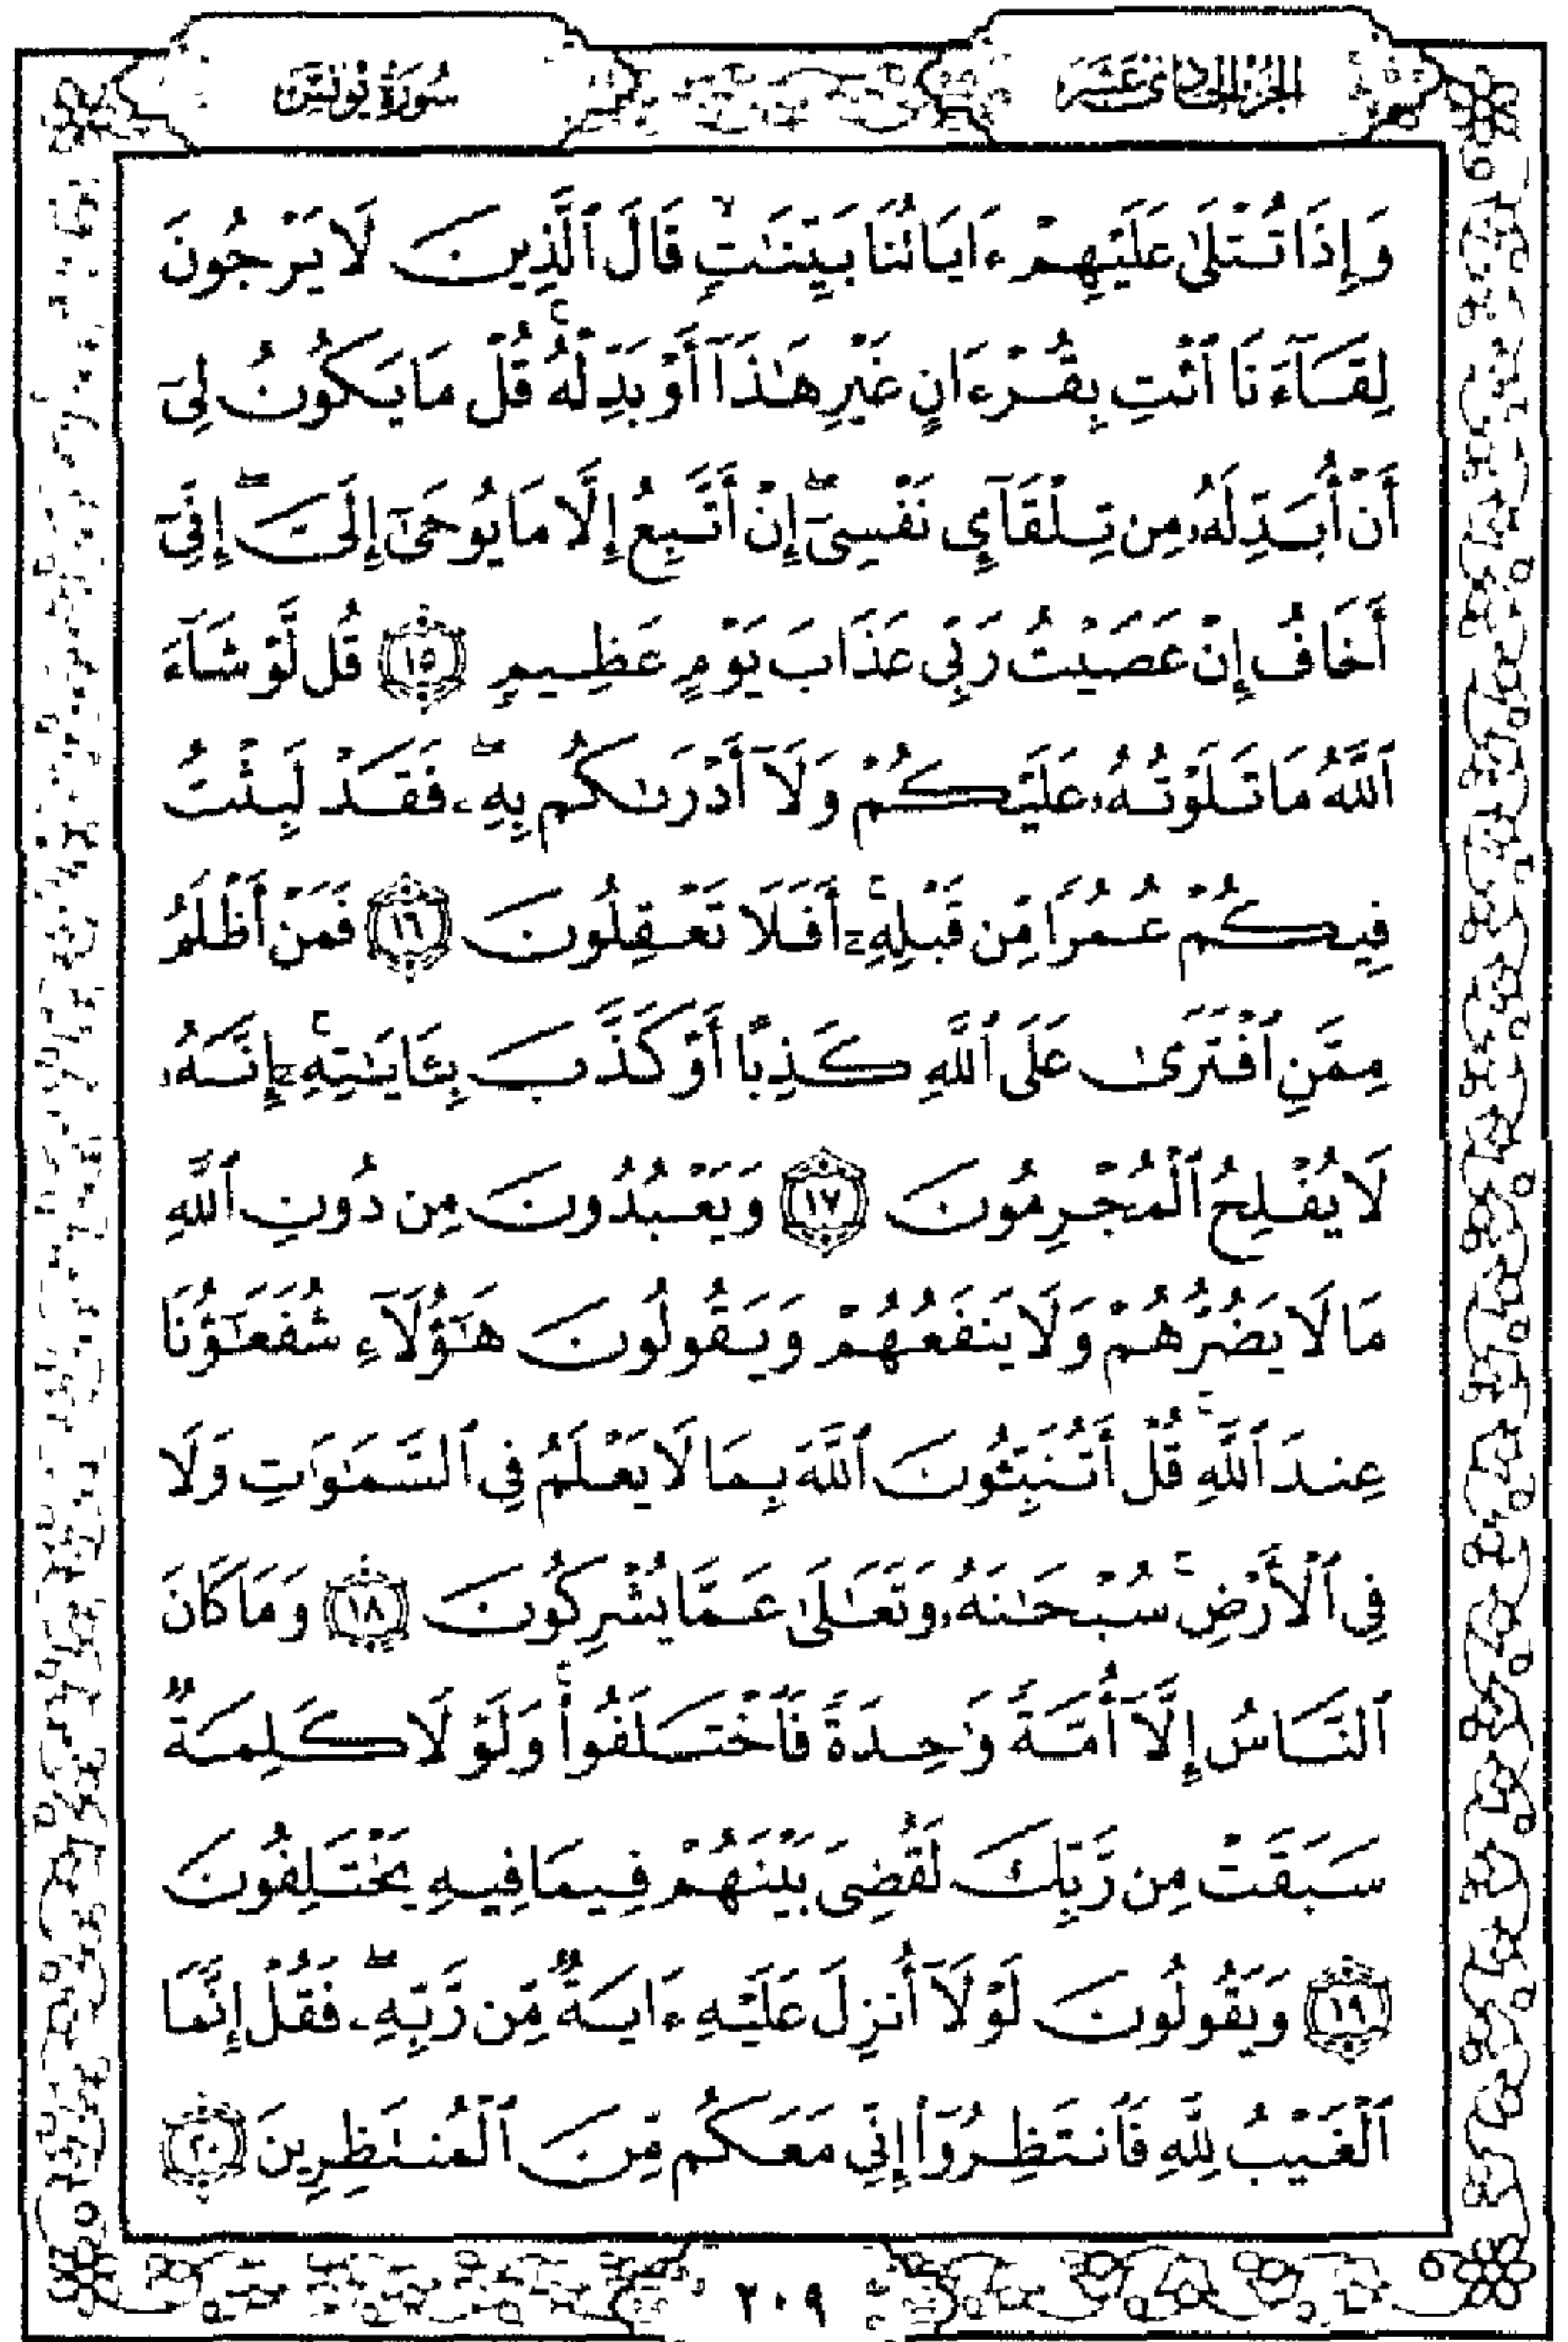 الجزء الحادي عشر
سورة يونس
وَإِذَا تُتْلَىٰ عَلَيْهِمْ ءَايَاتُنَا بَيِّنَٰتٍۙ قَالَ ٱلَّذِينَ لَا يَرْجُونَ
لِقَآءَنَا ٱئْتِ بِقُرْءَانٍ غَيْرِ هَٰذَآ أَوْ بَدِّلْهُۚ قُلْ مَا يَكُونُ لِىٓ
أَنْ أُبَدِّلَهُۥ مِن تِلْقَآئِ نَفْسِىٓۖ إِنْ أَتَّبِعُ إِلَّا مَا يُوحَىٰٓ إِلَىَّۖ إِنِّىٓ
أَخَافُ إِنْ عَصَيْتُ رَبِّى عَذَابَ يَوْمٍ عَظِيمٍ ١٥ قُل لَّوْ شَآءَ
ٱللَّهُ مَا تَلَوْتُهُۥ عَلَيْكُمْ وَلَآ أَدْرَىٰكُم بِهِۦۖ فَقَدْ لَبِثْتُ
فِيكُمْ عُمُرًا مِّن قَبْلِهِۦٓۚ أَفَلَا تَعْقِلُونَ ١٦ فَمَنْ أَظْلَمُ
مِمَّنِ ٱفْتَرَىٰ عَلَى ٱللَّهِ كَذِبًا أَوْ كَذَّبَ بِـَٔايَٰتِهِۦٓۚ إِنَّهُۥ
لَا يُفْلِحُ ٱلْمُجْرِمُونَ ١٧ وَيَعْبُدُونَ مِن دُونِ ٱللَّهِ
مَا لَا يَضُرُّهُمْ وَلَا يَنفَعُهُمْ وَيَقُولُونَ هَٰٓؤُلَآءِ شُفَعَٰٓؤُنَا
عِندَ ٱللَّهِۚ قُلْ أَتُنَبِّـُٔونَ ٱللَّهَ بِمَا لَا يَعْلَمُ فِى ٱلسَّمَٰوَٰتِ وَلَا
فِى ٱلْأَرْضِۚ سُبْحَٰنَهُۥ وَتَعَٰلَىٰ عَمَّا يُشْرِكُونَ ١٨ وَمَا كَانَ
ٱلنَّاسُ إِلَّآ أُمَّةً وَٰحِدَةً فَٱخْتَلَفُوا۟ۚ وَلَوْلَا كَلِمَةٌ
سَبَقَتْ مِن رَّبِّكَ لَقُضِىَ بَيْنَهُمْ فِيمَا فِيهِ يَخْتَلِفُونَ
١٩ وَيَقُولُونَ لَوْلَآ أُنزِلَ عَلَيْهِ ءَايَةٌ مِّن رَّبِّهِۦۖ فَقُلْ إِنَّمَا
ٱلْغَيْبُ لِلَّهِ فَٱنتَظِرُوٓا۟ إِنِّى مَعَكُم مِّنَ ٱلْمُنتَظِرِينَ ٢٠
٢٠٩